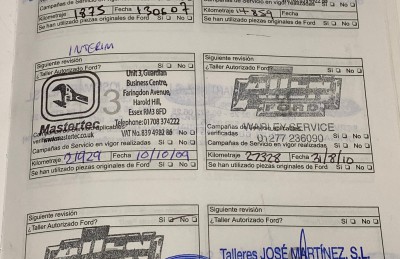 Campañas de Servicio en vigor realizadas Si No
Kilometraje 1873 Fecha 130607
Se han utilizado piezas originales de Ford? Si No
Kilometraje 14359 Fecha
Se han utilizado piezas originales de Ford? Si No
INTERIM
Siguiente revisión
¿Taller Autorizado Ford? Si No
Unit 3, Guardian
Business Centre,
Faringdon Avenue,
Harold Hill,
Essex RM3 8FD
Telephone: 01708 374222
VAT No. 839 4982 88
Mastertec
www.mastertec.co.uk
Campañas de Servicio en vigor realizadas Si No
Kilometraje 21929 Fecha 10/10/09
Se han utilizado piezas originales de Ford? Si No
Siguiente revisión
¿Taller Autorizado Ford? Si No
ALLEN
FORD
WARLEY SERVICE
01277 236090
verificadas Si No
Campañas de Servicio en vigor realizadas Si No
Kilometraje 27328 Fecha 31/8/10
Se han utilizado piezas originales de Ford? Si No
Siguiente revisión
¿Taller Autorizado Ford? Si No
ALLEN
Siguiente revisión
¿Taller Autorizado Ford? Si No
Talleres JOSÉ MARTÍNEZ, S.L.